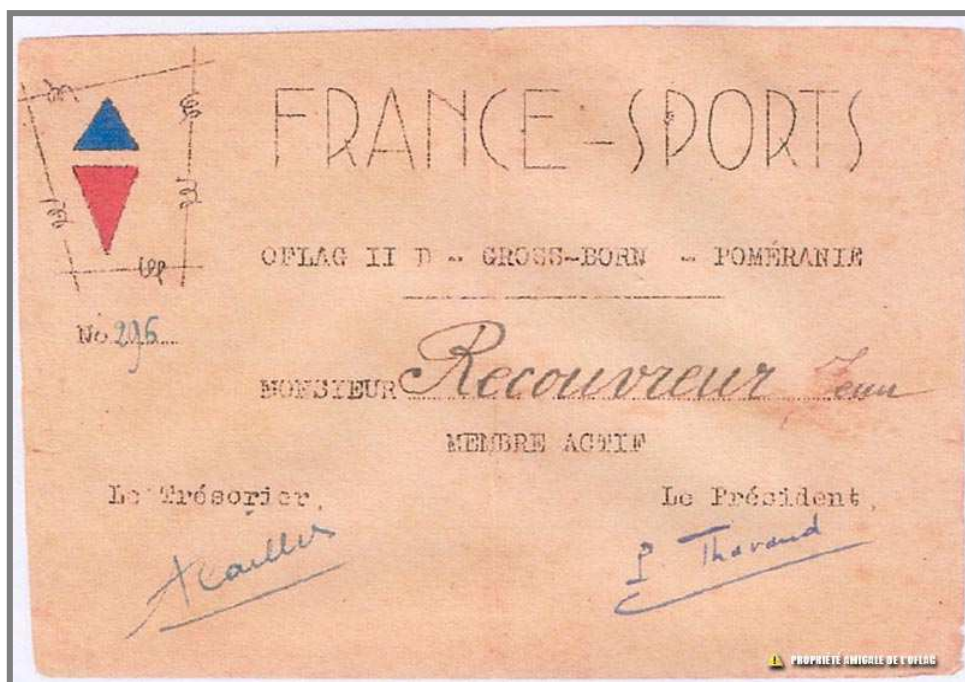 FRANCE-SPORTS
OFLAG II D - GROSS-BORN - POMÉRANIE
No 296
MONSIEUR Recouvreur Jean
MEMBRE ACTIF
Le Trésorier, Le Président,
P. Tharaud
PROPRIÉTÉ AMICALE DE L'OFLAG